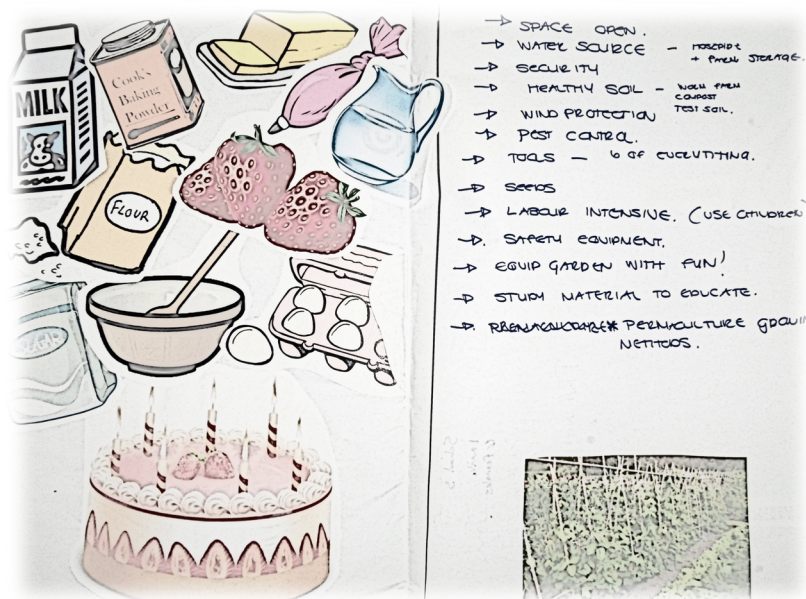 MILK
Cook's
Baking
Powder
FLOUR
SUGAR
→ SPACE OPEN.
→ WATER SOURCE - HOSEPIPE
+ STORAGE.
→ SECURITY
→ HEALTHY SOIL - WORM FARM
COMPOST
TEST SOIL.
→ WIND PROTECTION
→ PEST CONTROL.
→ TOOLS - 6 OF EVERYTHING.
→ SEEDS
→ LABOUR INTENSIVE. (USE CHILDREN)
→ SAFETY EQUIPMENT.
→ EQUIP GARDEN WITH FUN!
→ STUDY MATERIAL TO EDUCATE.
→ PERMACULTURE GROWI
METHODS.